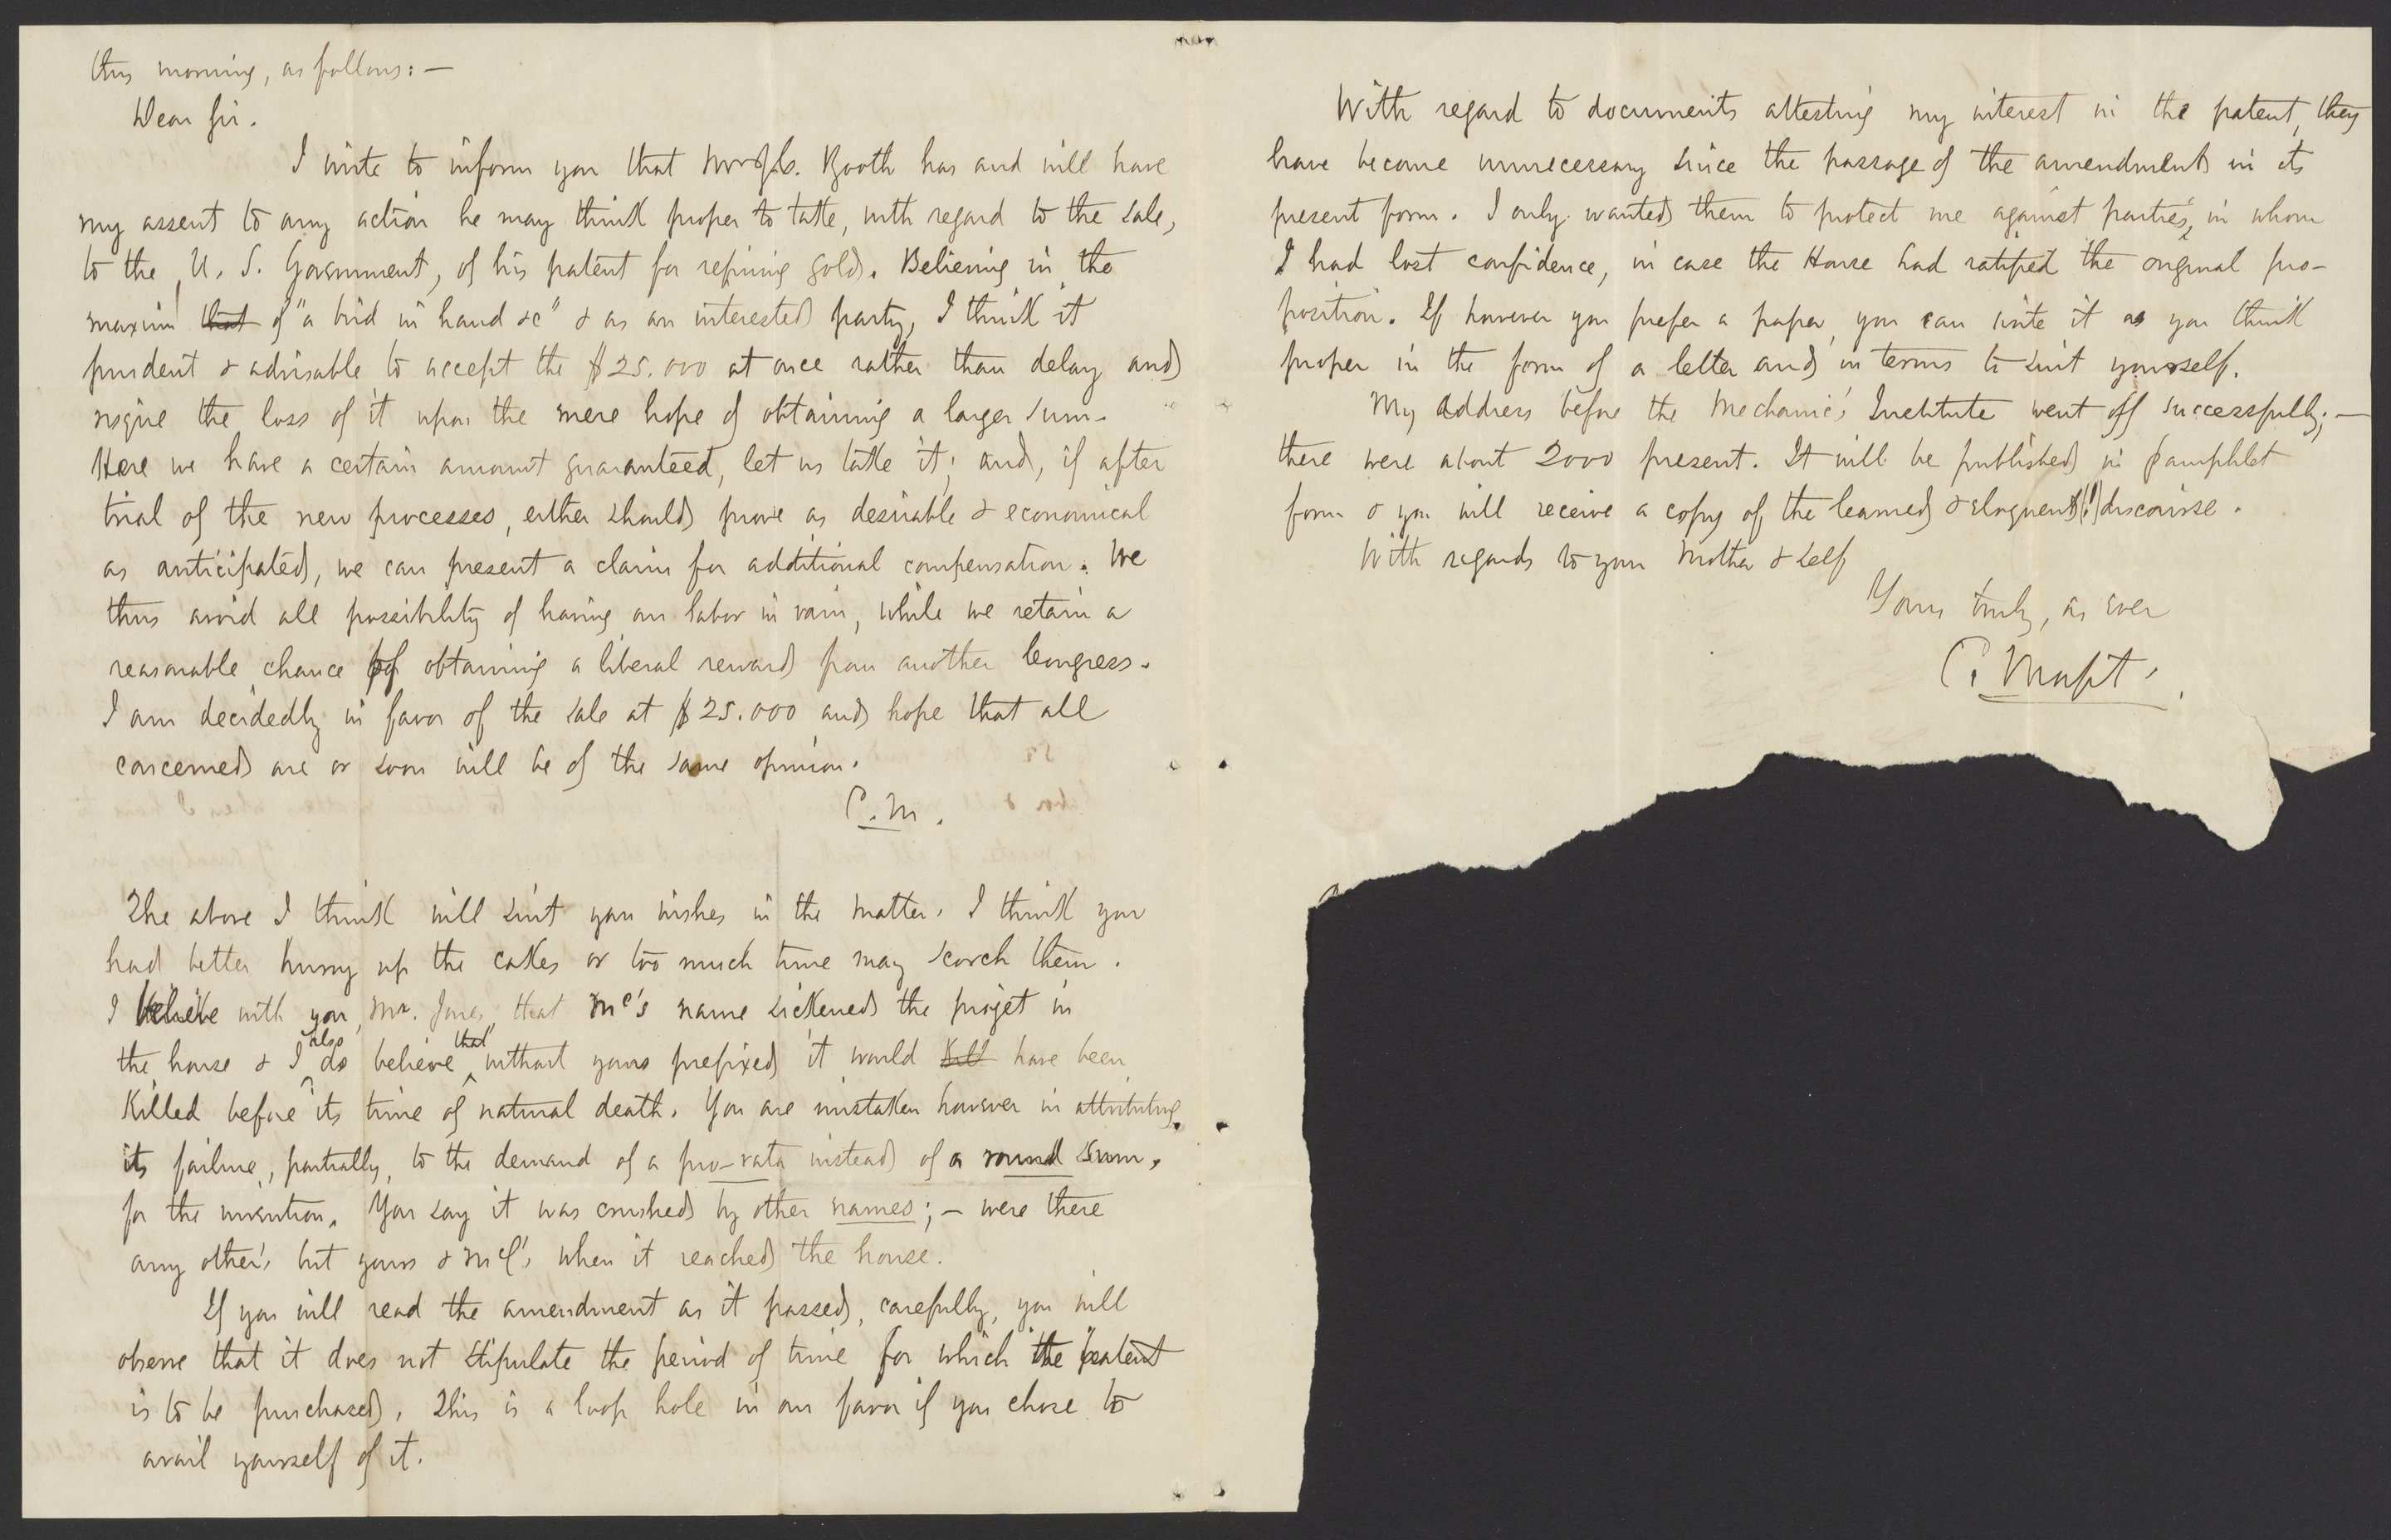 this morning, as follows: —
Dear Sir.
I write to inform you that Booth has and will have
my assent to any action he may think proper to take, with regard to the sale,
to the U. S. Government, of his patent for refining gold. Believing in the
maxim that of "a bird in hand &c" & as an interested party, I think it
prudent & advisable to accept the $25.000 at once rather than delay and
risque the loss of it upon the mere hope of obtaining a larger sum.
Here we have a certain amount guaranteed, let us take it; and, if after
trial of the new processes, either should prove as desirable & economical
as anticipated, we can present a claim for additional compensation. We
thus avoid all possibility of having our labor in vain, while we retain a
reasonable chance of obtaining a liberal reward from another Congress.
I am decidedly in favor of the sale at $25.000 and hope that all
concerned are or soon will be of the same opinion.
C. M.
The above I think will suit your wishes in the matter. I think you
had better hurry up the cakes or too much time may scorch them.
I believe with you, Mr. Jones, that Mc's name sickened the projet in
the house & I also do believe that without yours prefixed it would kill have been
killed before its time of natural death. You are mistaken however in attributing
its failure, partially, to the demand of a pro-rata instead of a round sum,
for the invention. You say it was crushed by other names; — were there
any other's but yours & McC's when it reached the house.
If you will read the amendment as it passed, carefully, you will
observe that it does not stipulate the period of time for which the patent
is to be purchased. This is a loop hole in our favor if you chose to
avail yourself of it.
With regard to documents attesting my interest in the patent, they
have become unnecessary since the passage of the amendment in its
present form. I only wanted them to protect me against parties, in whom
I had lost confidence, in case the House had ratified the original pro-
position. If however you prefer a paper, you can write it as you think
proper in the form of a letter and in terms to suit yourself.
My address before the Mechanic's Institute went off successfully; —
there were about 2000 present. It will be published in pamphlet
form & you will receive a copy of the learned & eloquent (!) discourse.
With regards to your Mother & self
Yours truly, as ever
C. Morfit.